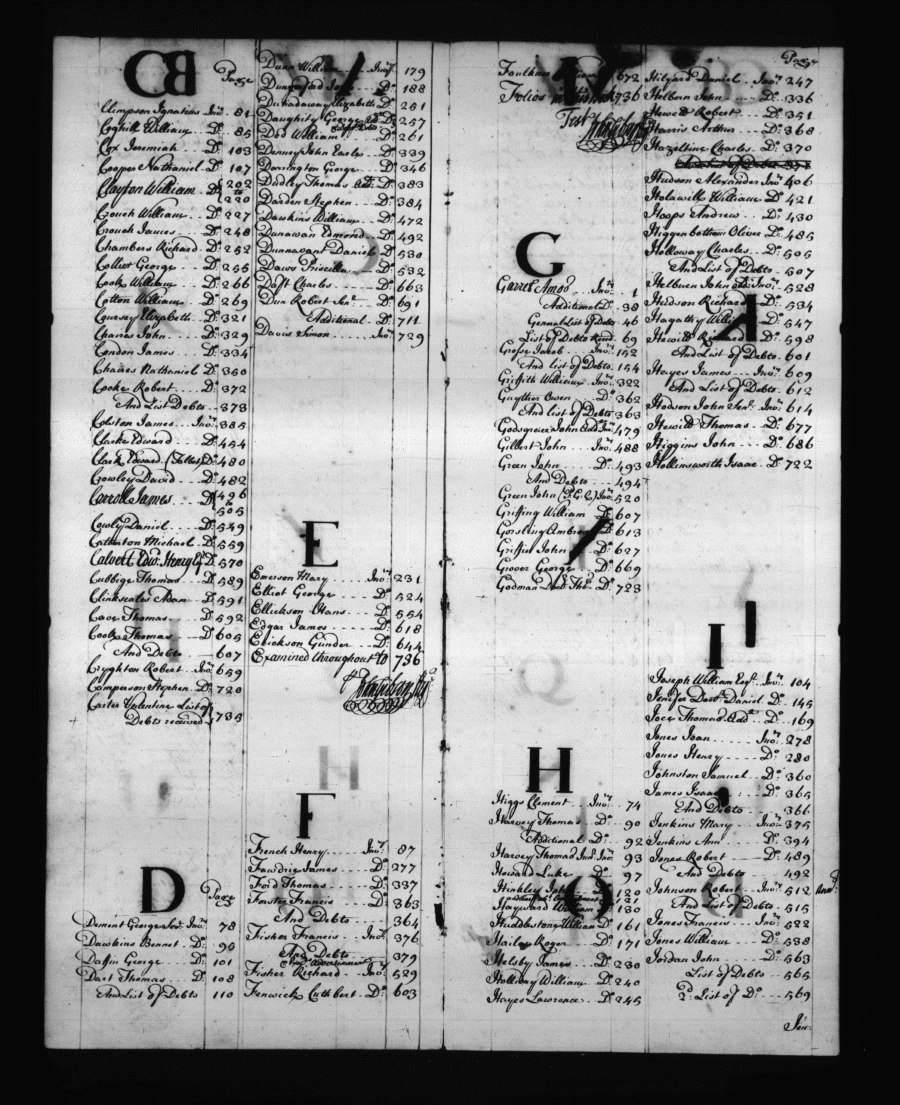 C
Page
Climpson Ignatius Inv.y 81
Coghill William Do 85
Cox Jeremiah Do 103
Cooper Nathaniel Do 107
Clayton William Do 202 to 220
Crouch William Do 227
Crouch James Do 248
Chambers Richard Do 252
Colliet George Do 255
Cook William Do 266
Cotton William Do 269
Coursey Elizabeth Do 321
Chaires John Do 329
Condon James Do 334
Chaires Nathaniel Do 350
Cooke Robert Do 372
And List Debts 373
Colston James Inv.y 385
Clarke Edward Do 454
Clark Edward (Talbot) Do 480
Crowley David Do 482
Carroll James Do 496 to 505
Cowly Daniel Do 549
Catterton Michael Do 559
Calvert Edw.d Henry Do 570
Cubbige Thomas Do 589
Clinkscales Adam Do 591
Cave Thomas Do 592
Cook Thomas Do 605
And Debts 607
Cryghton Robert Inv.y 659
Camperson Stephen Do 720
Carter Valentine List of
Debts received 735
D
Page
Demint George Inv.y 78
Dawkins Bennet Do 95
Daffin George Do 101
Dart Thomas Do 108
And List of Debts 110
Dunn William Inv.y 179
Do 188
Elizabeth Do 251
Daughity George Do 257
William Do 261
Denney John Earles Do 339
Dorrington George Do 346
Dadley Thomas Do 383
Darden Stephen Do 384
Dawkins William Do 472
Dunawan Edmond Do 492
Dunnavant Daniel Do 530
Daws Priscilla Do 532
Daft Charles Do 663
Dun Robert Sen.r Do 691
Additional Do 711
Davis Simon Inv.y 729
E
Emerson Mary Inv.y 231
Elliot George Do 524
Ellickson Hans Do 554
Edgar James Do 618
Erickson Gunder Do 644
Examined throughout to 736
F
French Henry Inv.y 87
James Do 277
Ford Thomas Do 337
Forster Francis Do 363
And Debts 364
Fisher Francis Inv.y 376
And Debts 379
Fisher Richard Inv.y 529
Fenwick Cuthbert Do 603
Faulkner 672
Folios 736
Test
G
Garret Amos Inv.y 1
Additional Do 38
General List of Debts 46
List of Debts Rec.d 69
Gross Jacob Inv.y 152
And list of Debts 154
Griffith William Inv.y 322
Gayther Owen Do 362
And list of Debts 363
John Add.l Inv.y 479
Gilbert John Inv.y 488
Green John Do 493
And Debts 494
Green John (P.G.C) Inv.y 520
Griffing William Do 607
Gorsling Do 613
Griffin John Do 627
Grover George Do 669
Godman Tho.s Do 723
H
Higgs Clement Inv.y 74
Harvey Thomas Do 90
Additional Do 92
Harvey Thomas Inv.y 93
Howard Luke Do 97
Hinkley John Do 120
121
Hayward William 130
Huddlestone William Do 161
Hailey Roger Do 171
Helsby James Do 230
Hallway William Do 240
Hayes Lawrence Do 245
Page
Hilyard Daniel Inv.y 247
Holburn John Do 336
Hewett Robert Do 351
Harris Arthur Do 368
Hazeltine Charles Do 370
Hudson Alexander Inv.y 406
Holawill William Do 421
Hoops Andrew Do 430
Higgenbottom Olive Do 485
Holloway Charles Do 505
And List of Debts 507
Helburn John Add.l Inv.y 528
Hudson Richard Do 534
Hagathy Do 547
Hewitt Do 598
And List of Debts 601
Hayes James Inv.y 609
And List of Debts 612
Hodson John Sen.r Inv.y 614
Hewitt Thomas Do 677
Higgins John Do 686
Hollinsworth Isaac Do 722
I
Joseph William Esq.r Inv.y 104
Jenifer Doct.r Daniel Do 145
Thomas Add.l Do 169
Jones Joan Inv.y 278
Jones Henry Do 280
Johnston Samuel Do 360
James Isaac Do 365
And Debts 366
Jenkins Mary Inv.y 375
Jenkins Ann Do 394
Jones Robert Do 489
And Debts 492
Johnson Robert Inv.y 512
And List of Debts 515
Jones Francis Inv.y 522
Jones William Do 538
Jordan John Do 563
List of Debts 565
2.d List of Do 569